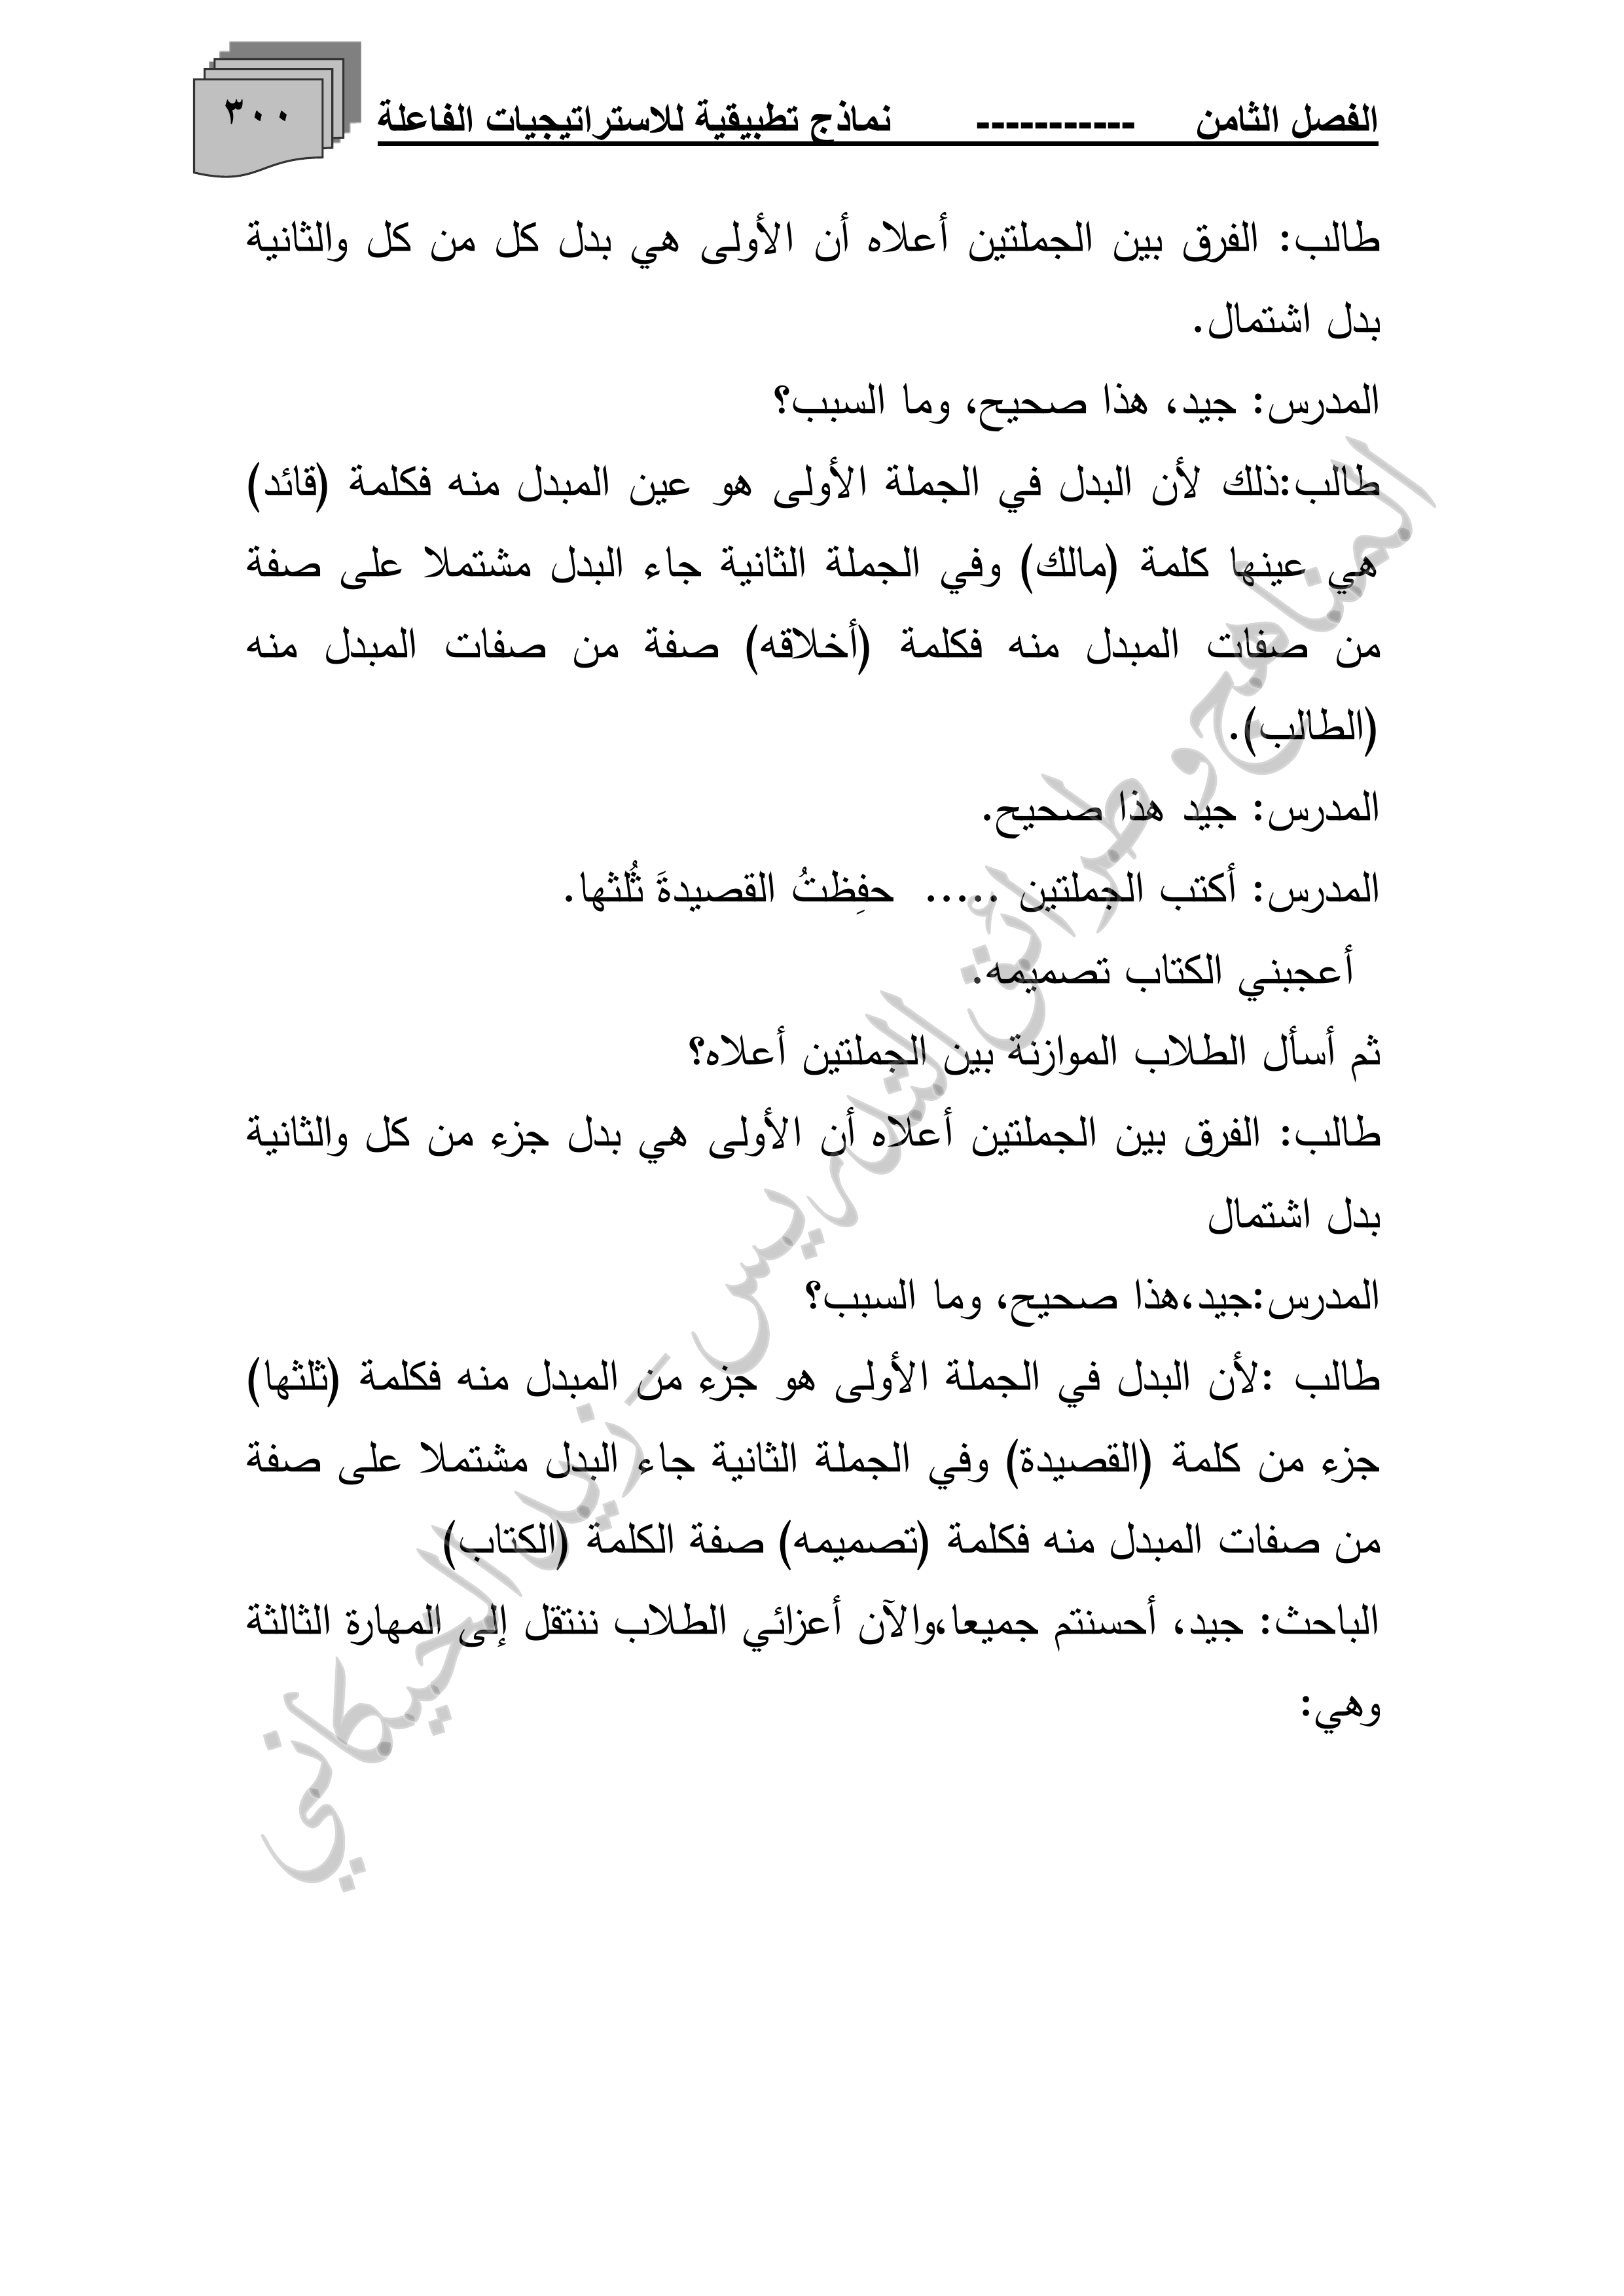 الفصل الثامن ----------- نماذج تطبيقية للاستراتيجيات الفاعلة ٣٠٠
طالب: الفرق بين الجملتين أعلاه أن الأولى هي بدل كل من كل والثانية
بدل اشتمال.
المدرس: جيد، هذا صحيح، وما السبب؟
طالب:ذلك لأن البدل في الجملة الأولى هو عين المبدل منه فكلمة (قائد)
هي عينها كلمة (مالك) وفي الجملة الثانية جاء البدل مشتملا على صفة
من صفات المبدل منه فكلمة (أخلاقه) صفة من صفات المبدل منه
(الطالب).
المدرس: جيد هذا صحيح.
المدرس: أكتب الجملتين ..... حفِظتُ القصيدةَ ثُلثها.
أعجبني الكتاب تصميمه.
ثم أسأل الطلاب الموازنة بين الجملتين أعلاه؟
طالب: الفرق بين الجملتين أعلاه أن الأولى هي بدل جزء من كل والثانية
بدل اشتمال
المدرس:جيد،هذا صحيح، وما السبب؟
طالب :لأن البدل في الجملة الأولى هو جزء من المبدل منه فكلمة (ثلثها)
جزء من كلمة (القصيدة) وفي الجملة الثانية جاء البدل مشتملا على صفة
من صفات المبدل منه فكلمة (تصميمه) صفة الكلمة (الكتاب)
الباحث: جيد، أحسنتم جميعا،والآن أعزائي الطلاب ننتقل إلى المهارة الثالثة
وهي:
المناهج و طرائق التدريس - زيد الحيكاني